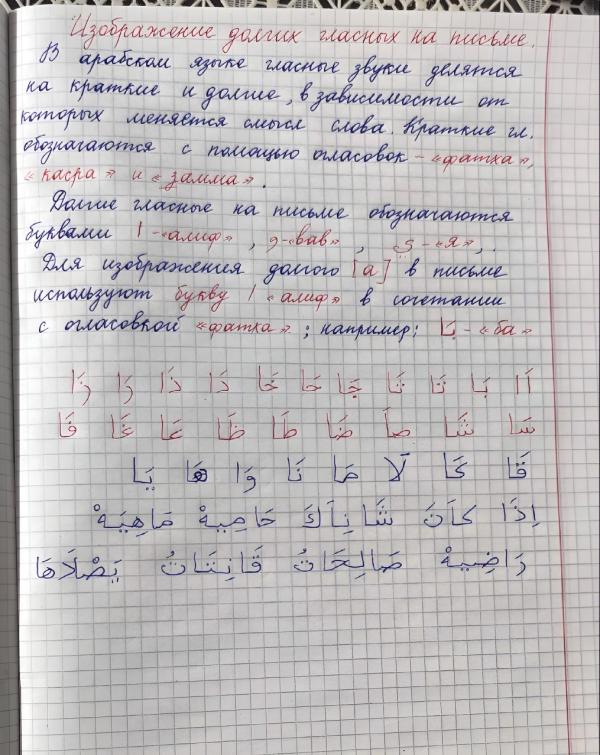 Изображение долгих гласных на письме.
В арабском языке гласные звуки делятся
на краткие и долгие, в зависимости от
которых меняется смысл слова. Краткие гл.
обозначаются с помощью огласовок - «фатха»,
«касра» и «замма».
Долгие гласные на письме обозначаются
буквами ا - «алиф», و - «вав», ي - «я».
Для изображения долгого [а] в письме
используют букву ا «алиф» в сочетании
с огласовкой «фатха»; например: بَا - «ба»
اَا بَا تَا ثَا جَا حَا خَا دَا ذَا رَا زَا
سَا شَا صَا ضَا طَا ظَا عَا غَا فَا
قَا كَا لَا مَا نَا وَا هَا يَا
اِذَا كَانَ شَانِاَكَ حَامِيةْ مَاهِيَهْ
رَاضِيةْ صَالِحَاتُ قَانِتَاتُ يَصْلَاهَا